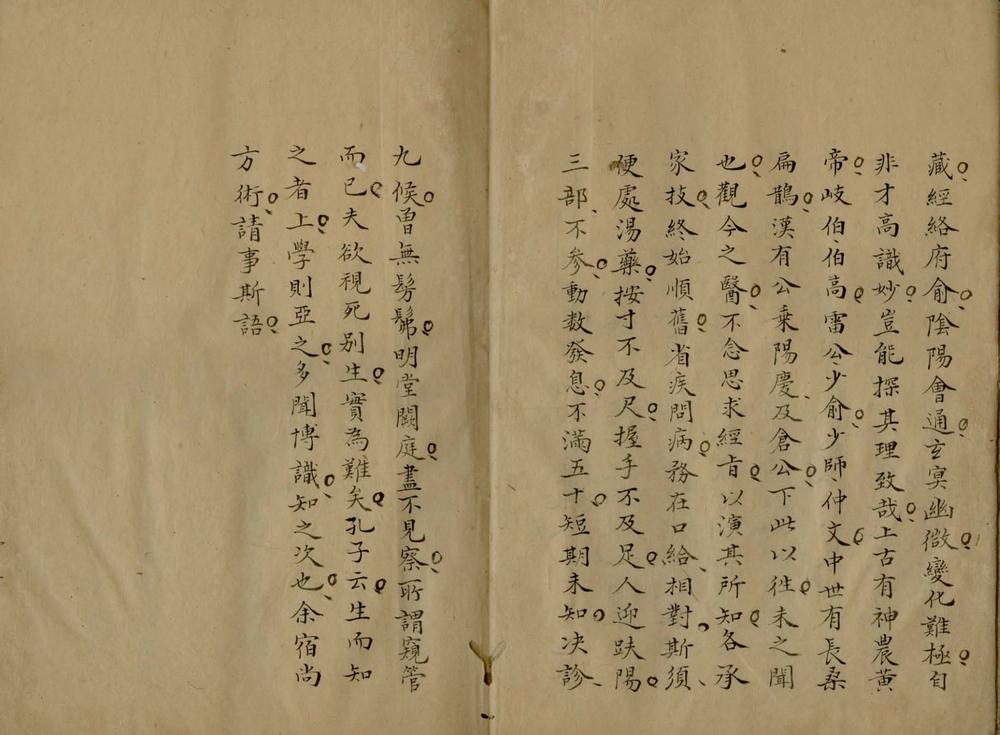 藏經絡府俞陰陽會通玄冥幽微變化難極自
非才高識妙豈能探其理致哉上古有神農黃
帝岐伯伯高雷公少俞少師仲文中世有長桑
扁鵲漢有公乗陽慶及倉公下此以徃未之聞
也觀今之醫不念思求經旨以演其所知各承
家技終始順舊省疾問病務在口給相對斯須
便處湯藥按寸不及尺握手不及足人迎趺陽
三部不參動数發息不滿五十短期未知决診
九候曽無髣髴明堂闕庭盡不見察所謂窺管
而已夫欲視死别生實為難矣孔子云生而知
之者上學則亞之多聞博識知之次也余宿尚
方術請事斯語